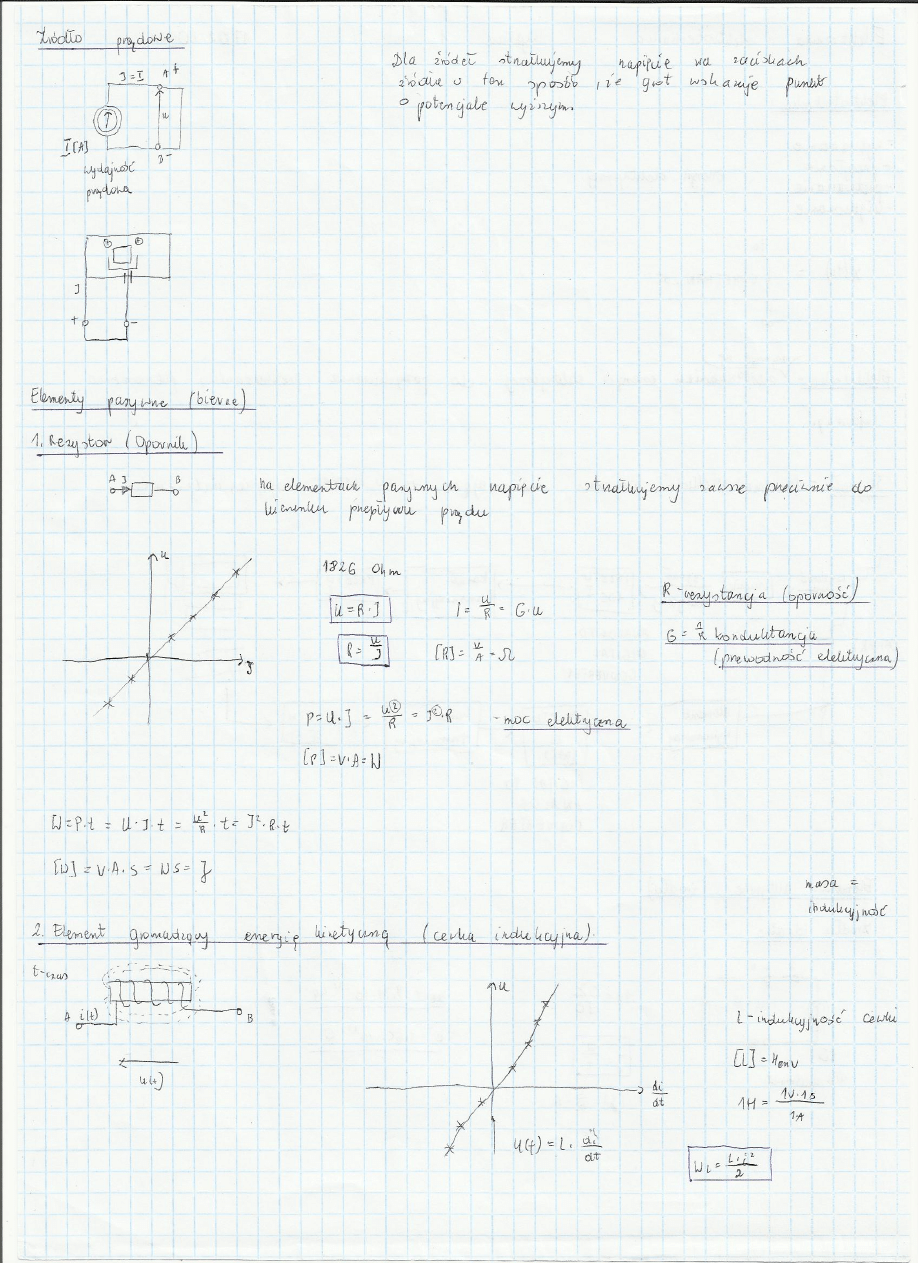 Źródło prądowe
J = I
A +
u
I [A]
B -
wydajność
prądowa
Dla źródeł strzałkujemy napięcie na zaciskach
źródła w ten sposób, że grot wskazuje punkt
o potencjale wyższym.
J
+ -
Elementy pasywne (bierne)
1. Rezystor (Opornik)
A J B
na elementach pasywnych napięcie strzałkujemy zawsze przeciwnie do
kierunku przepływu prądu
u
J
1826 Ohm
U = R · J
I = u/R = G · u
R = u/J
[R] = V/A = Ω
R - rezystancja (oporność)
G = 1/R konduktancja
(przewodność elektryczna)
P = U · J = u²/R = J² · R - moc elektryczna
[P] = V·A = W
W = P·t = U · J · t = u²/R · t = J² · R · t
[W] = V·A·s = Ws = J
masa =
indukcyjność
2. Element gromadzący energię kinetyczną (cewka indukcyjna)
t - czas
A i(t) B
u(t)
u
di/dt
u(t) = L · di/dt
L - indukcyjność cewki
[L] = Henr
1H = 1V·1s/1A
WL = L·i²/2